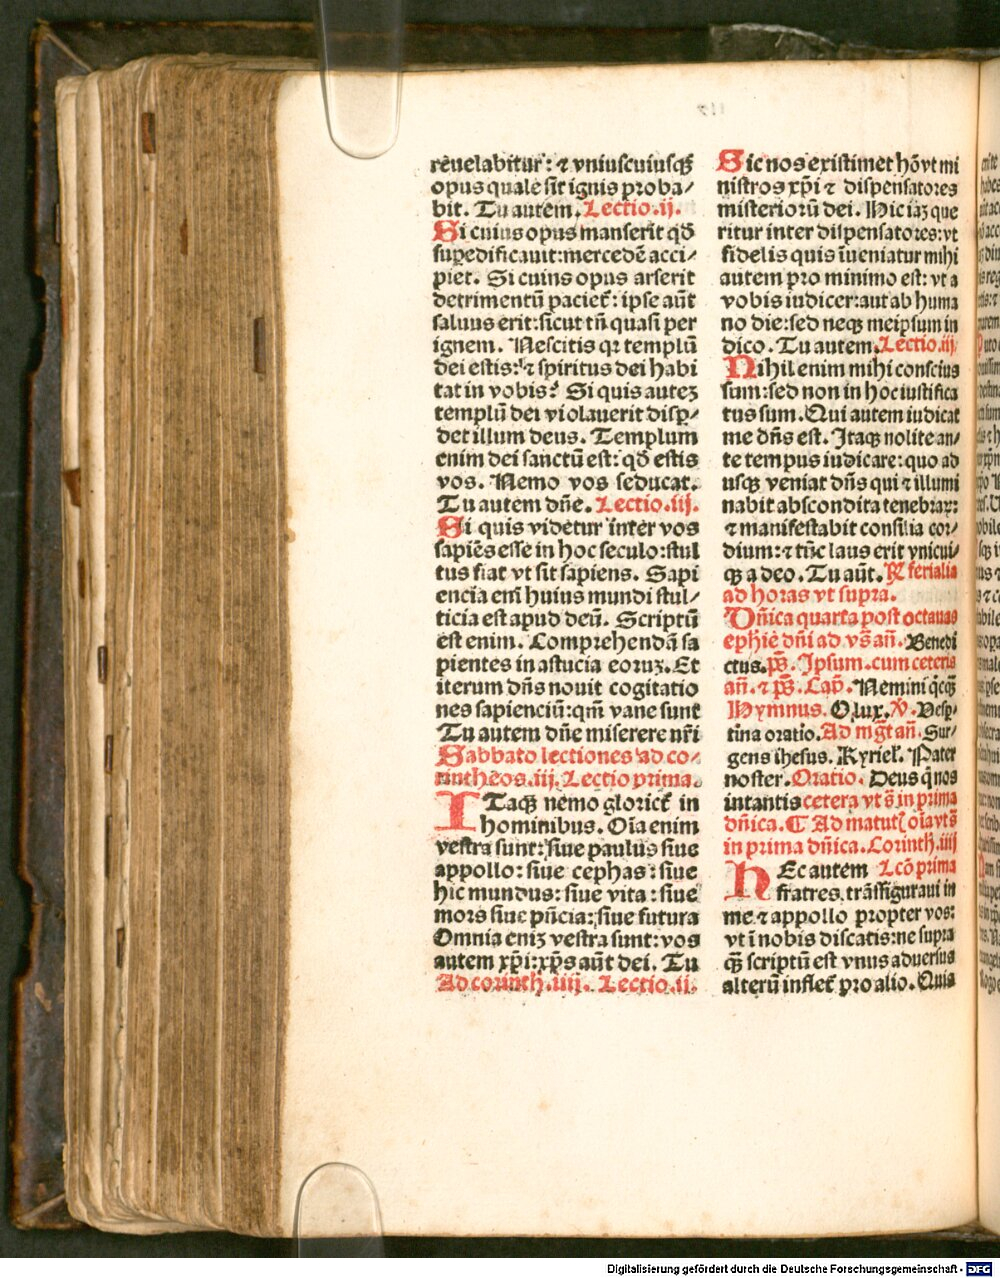 reuelabitur: ⁊ vniuscuiusqꝫ
opus quale sit ignis proba⸗
bit. Tu autem. Lectio .ij.
Si cuius opus manserit qđ
supedificauit: mercedē acci⸗
piet. Si cuius opus arserit
detrimentū paciet᷑: ipse aūt
saluus erit: sicut tñ quasi per
ignem. Nescitis qꝛ templū
dei estis: ⁊ spiritus dei habi
tat in vobis? Si quis auteꝫ
templū dei violauerit disp̱⸗
det illum deus. Templum
enim dei sanctū est: qđ estis
vos. Nemo vos seducat.
Tu autem dñe. Lectio .iij.
Si quis videtur inter vos
sapiēs esse in hoc seculo: stul
tus fiat vt sit sapiens. Sapi
encia em̄ huius mundi stul⸗
ticia est apud deū. Scriptū
est enim. Comprehendā sa
pientes in astucia eoruꝫ. Et
iterum dñs nouit cogitatio
nes sapienciū: qm̄ vane sunt
Tu autem dñe miserere nr̄i
Sabbato lectiones ad co⸗
rintheos .iij. Lectio prima.
ITaqꝫ nemo gloriet᷑ in
hominibus. Oīa enim
vestra sunt: siue paulus siue
appollo: siue cephas: siue
hic mundus: siue vita: siue
mors siue pñcia: siue futura
Omnia eniꝫ vestra sunt: vos
autem xp̄i: xp̄s aūt dei. Tu
Ad corinth. iiij. Lectio .ii.
Sic nos existimet hō vt mi
nistros xp̄i ⁊ dispensatores
misteriorū dei. Hic iaꝫ que
ritur inter dispensatores: vt
fidelis quis īueniatur mihi
autem pro minimo est: vt a
vobis iudicer: aut ab huma
no die: sed neqꝫ meipsum in
dico. Tu autem. Lectio .iij
Nihil enim mihi conscius
sum: sed non in hoc iustifica
tus sum. Qui autem iudicat
me dñs est. Itaqꝫ nolite an⸗
te tempus iudicare: quo ad
usqꝫ veniat dñs qui ⁊ illumi
nabit abscondita tenebraꝝ:
⁊ manifestabit consilia cor⸗
dium: ⁊ tūc laus erit vnicui⸗
qꝫ a deo. Tu aūt. ℟ ferialia
ad horas vt supra.
Dñica quarta post octauas
ephie dñi ad vs̄ añ. Benedi
ctus. ps̄. Ipsum. cum ceteris
añ. ⁊ ps̄. Cap̄. Nemini q̄cqꝫ
Hymnus. O lux. ꝟ. Vesp⸗
tina oratio. Ad mgt̄ añ. Sur⸗
gens ihesus. Kyriel̄. Pater
noster. Oratio. Deus q̄ nos
intantis cetera vt s̄ in prima
dñica. ¶ Ad matut̄ oīa vt s̄
in prima dñica. Corinth. iiij
HEc autem Lcō prima
fratres trāsfiguraui in
me ⁊ appollo propter vos:
vt ī nobis discatis: ne supra
qꝫ̄ scriptū est vnus aduersus
alterū inflet᷑ pro alio. Quis
Digitalisierung gefördert durch die Deutsche Forschungsgemeinschaft - DFG